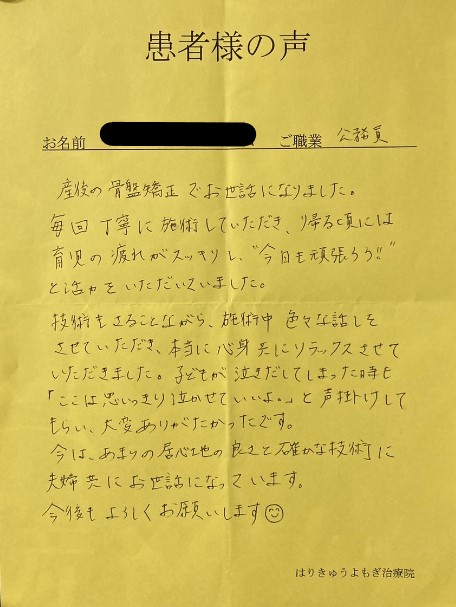 患者様の声
お名前 ご職業 公務員
産後の骨盤矯正でお世話になりました。
毎回丁寧に施術していただき、帰る頃には
育児の疲れがスッキリし、"今日も頑張ろう!!"
と活力をいただいていました。
技術もさることながら、施術中 色々な話しを
させていただき、本当に心身共にリラックスさせて
いただきました。子どもが泣きだしてしまった時も
「ここは思いっきり泣かせていいよ。」と声掛けして
もらい、大変ありがたかったです。
今は、あまりの居心地の良さと確かな技術に
夫婦共にお世話になっています。
今後もよろしくお願いします☺
はりきゅうよもぎ治療院